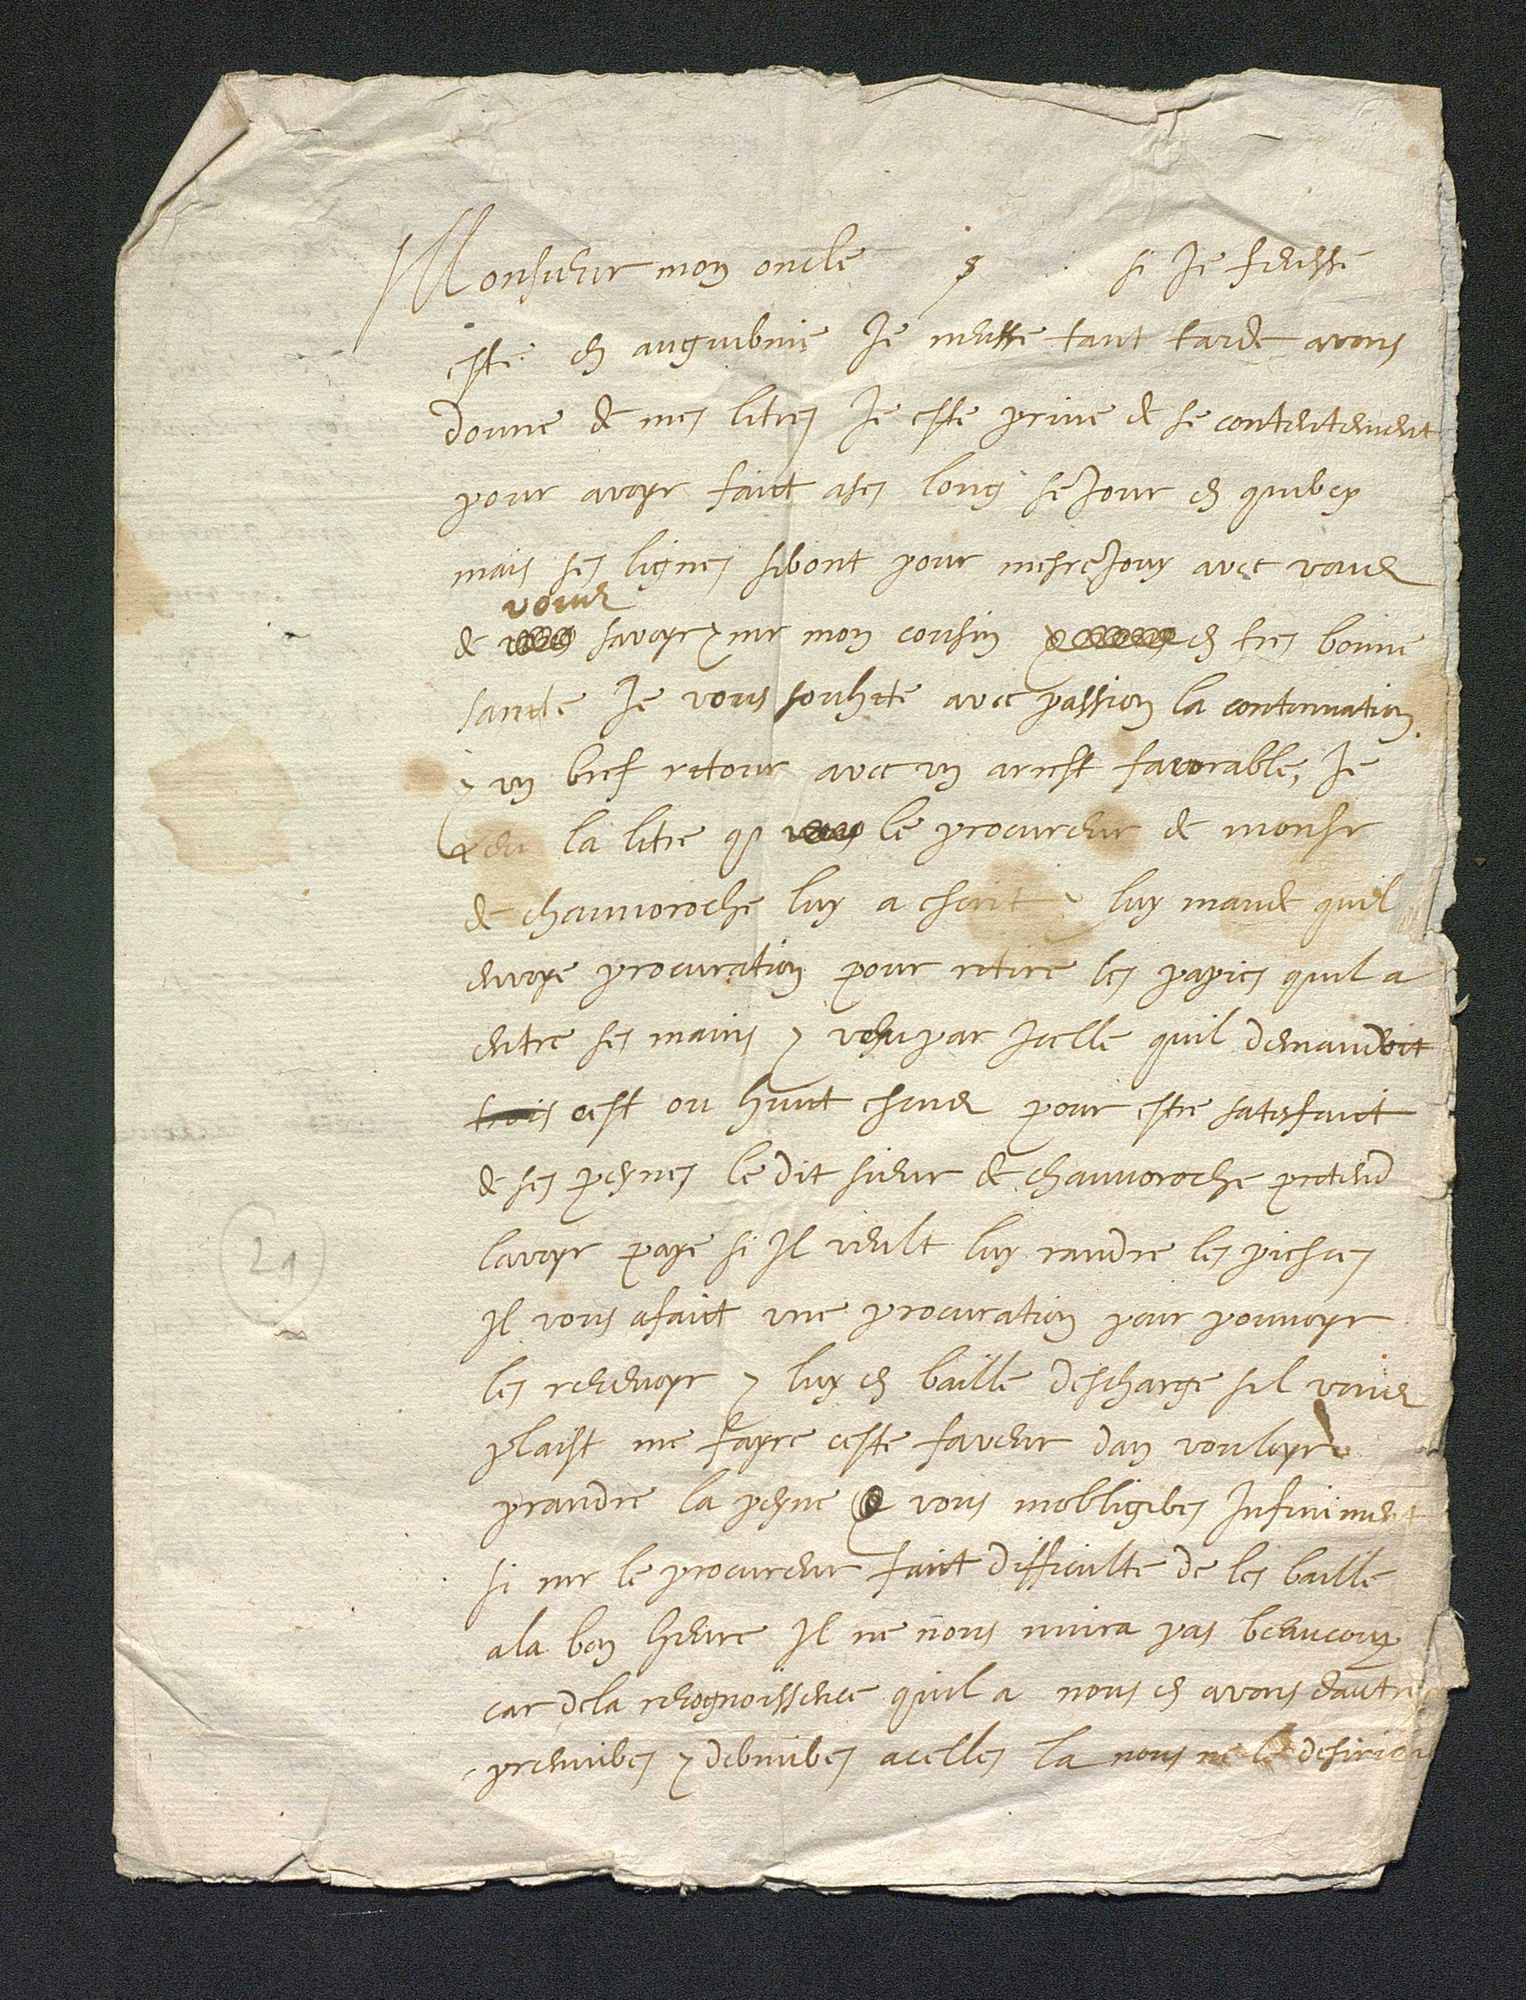 Monsieur mon oncle si je feusse
este en auguibnie je neusse tant tarde avous
donne de mes litres je este prive de se contentement
pour avoyr faict ases long sejour en
mais ses lignes seront pour mesrejouy avec vous
vous
de savoyr & mr mon cousin en tres bonne
sante je vous souhete avec passion la continuation
& un bref retour avec un arrest favorable, je
veu la litre que le procureur de monsr
de chauvoroche luy a escrit & luy mande quil
envoye procuration pour retire les papies quil a
entre ses mains & veu par icelle quil demandoit
trois cest ou huict escus pour estre satisfaict
de ses peynes le dit sieur de chauvoroche pretend
lavoyr paye si il veult luy randre les pieses
il vous a faict une procuration pour pouvoyr
les recevoyr & luy en baille descharge sil vous
plaist me fayre ceste faveur dan vouloyr
prandre la peyne vous mobligeres infiniment
si mr le procureur faict difficulte de les baille
a la bon heure il ne nous nuira pas beaucoup
car dela recognoissence quil a nous en avons dautre
premieres & dernieres a celles la nous ne le desirion
21